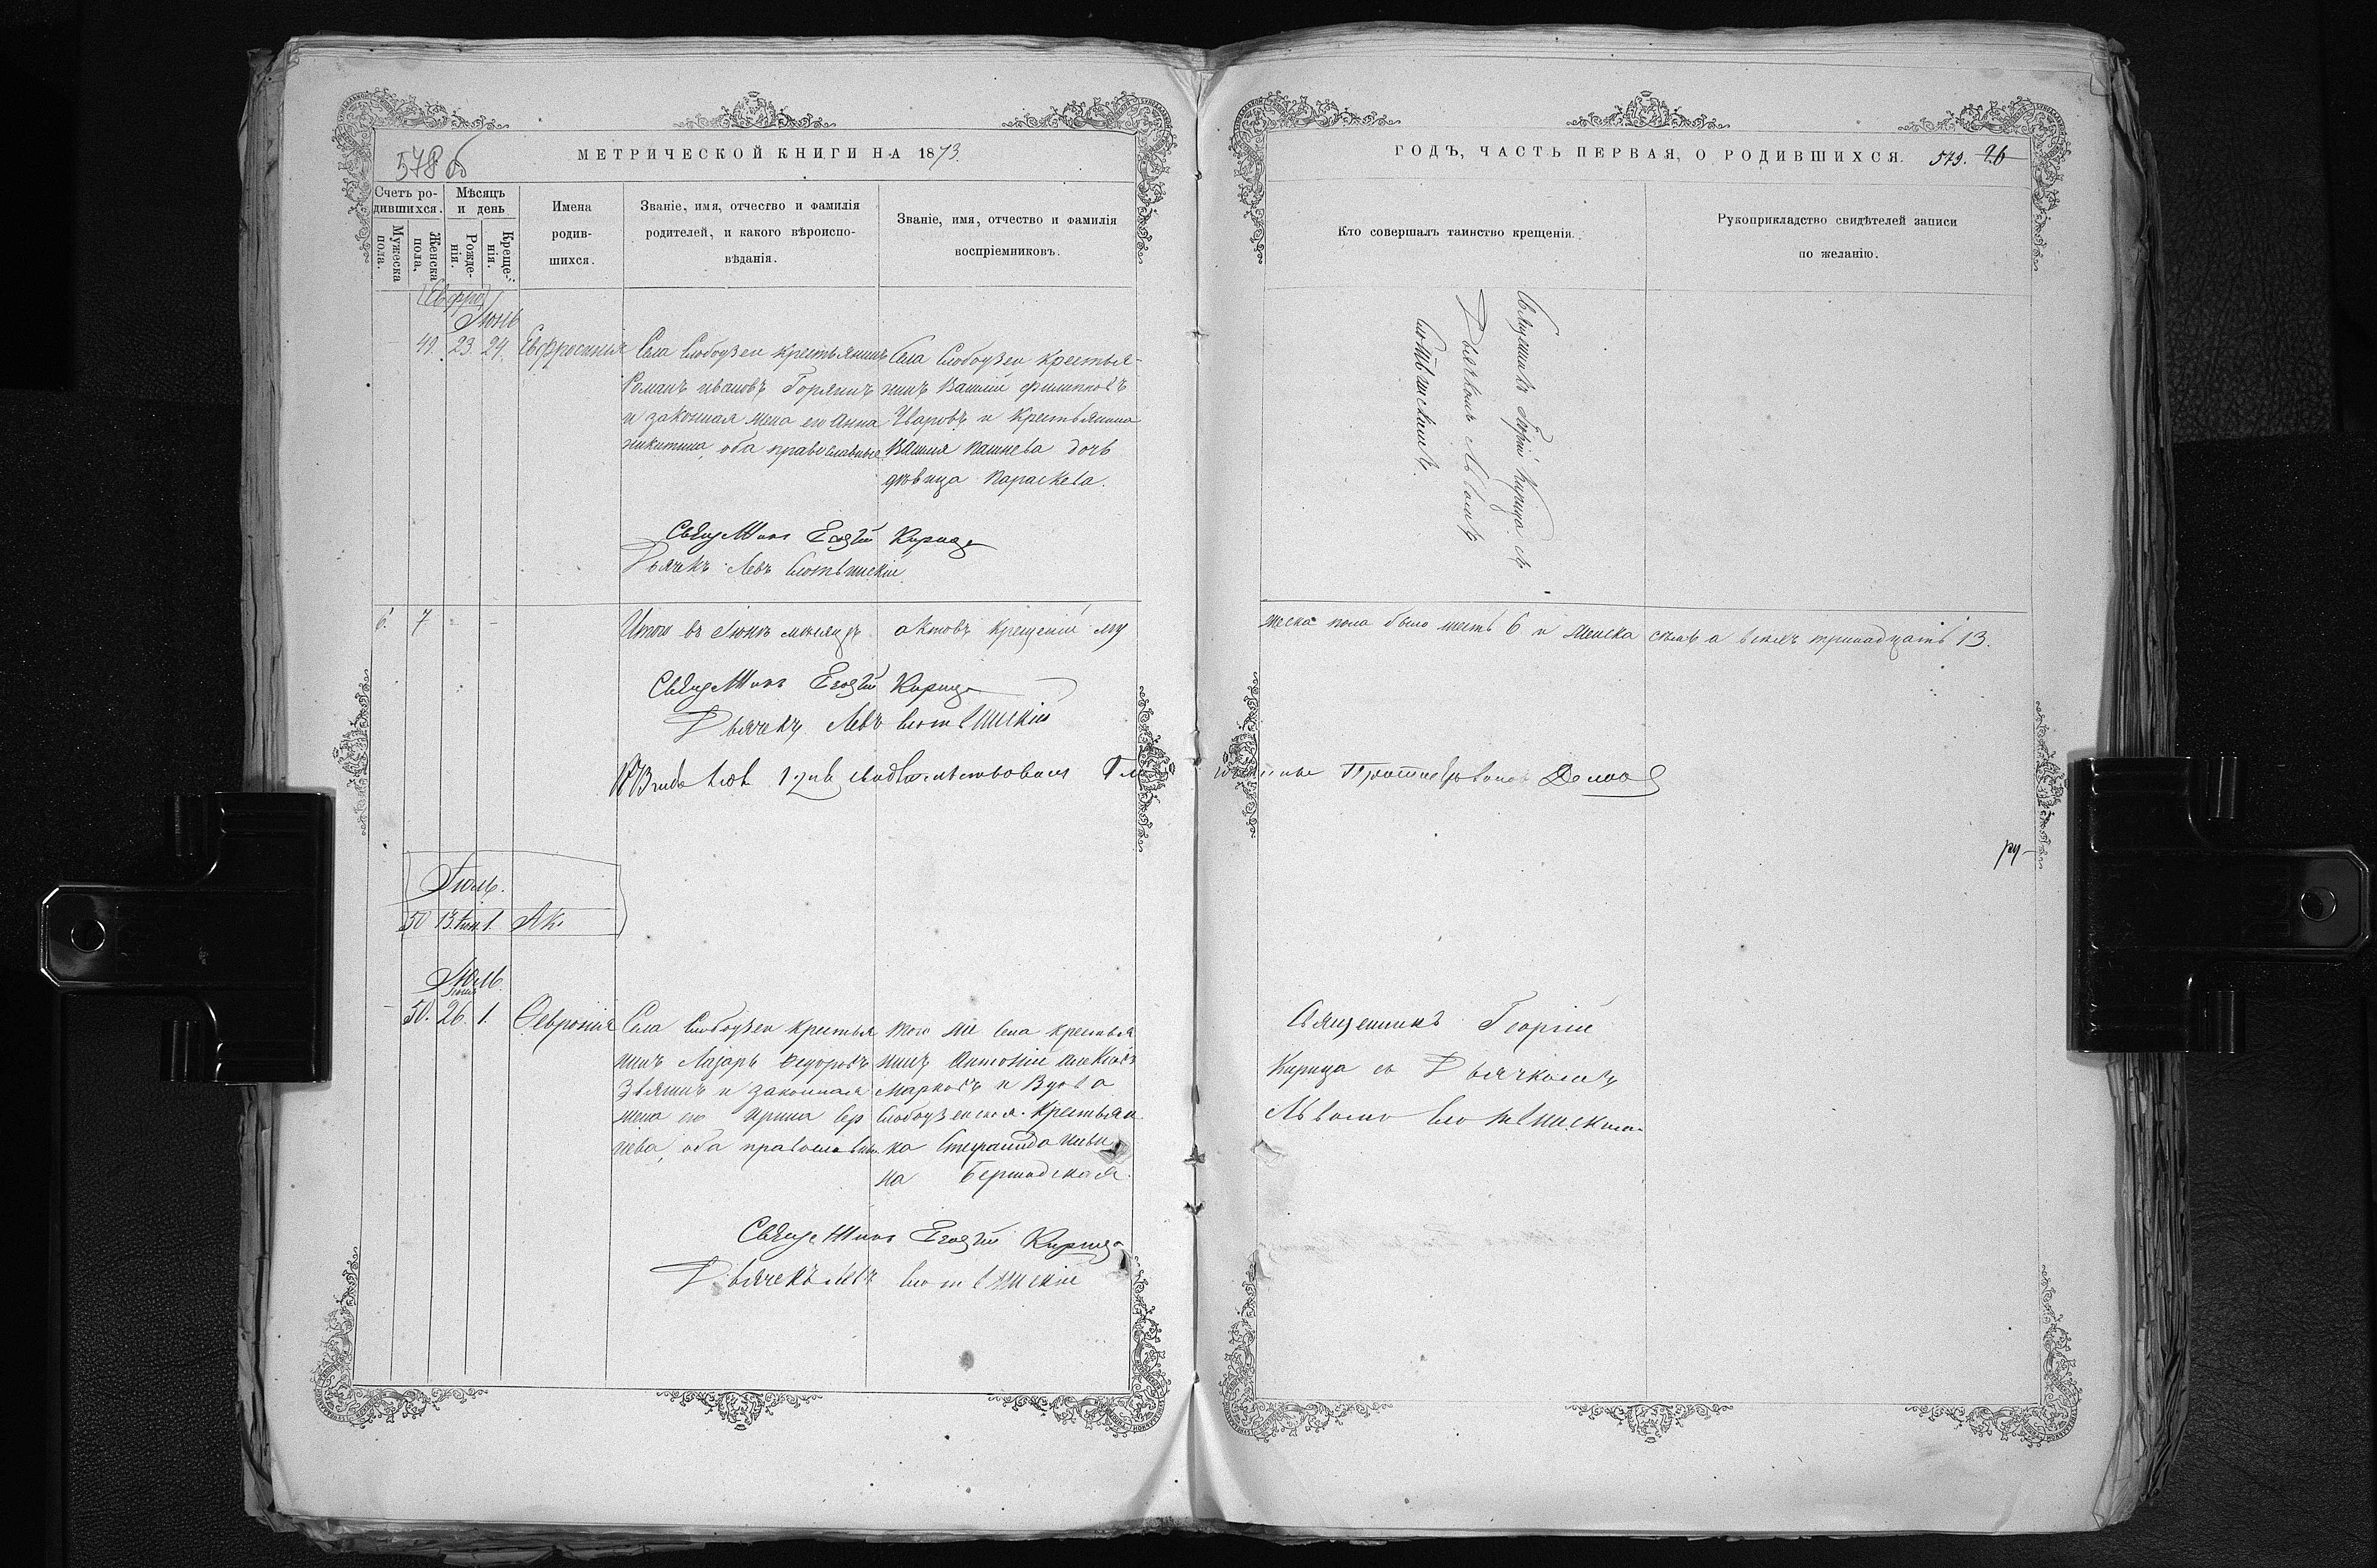 МЕТРИЧЕСКОЙ КНИГИ НА 1873.
578 об
Счетъ ро-
дившихся.
Мужеска
пола.
Женска
пола.
Мѣсяцъ
и день
Рожде-
нія.
Креще-
нія.
Имена
родив-
шихся.
Званіе, имя, отчество и фамилія
родителей, и какого вѣроиспо-
вѣданія.
Званіе, имя, отчество и фамилія
воспріемниковъ.
(Евфро)
Іюнь
49. 23. 24. Евфросинія
Села Слободзеи крестьянинъ
Романъ ивановъ Горянинъ
и законная жена его Анна
никитина, оба православные
Села Слободзеи крестья-
нинъ Василій филипповъ
Уваровъ и крестьянина
дочь
дѣвица Параскева.
Священникъ Георгій Кирица
Дьячекъ Левъ
6. 7 - -
Итого въ Іюнѣ мѣсяцѣ актовъ крещенія му
Священникъ Георгій Кирица
Дьячекъ Левъ
Іюль.
50 13. Іюн. 1. Ак
Іюль.
Іюня
- 50. 26. 1. Февронія
Села Слободзеи крестья
нинъ Лазарь Федоровъ
и законная
жена его Ирина Сер
гіева, оба православн.
того же села крестья
нинъ Антоній Алексіевъ
Марковъ и Вдова
Слободзейская крестьян
ка Стефанида
на Бершадская.
Священникъ Георгій Кирица
Дьячекъ Левъ
ГОДЪ, ЧАСТЬ ПЕРВАЯ, О РОДИВШИХСЯ. 579. 26
Кто совершалъ таинство крещенія.
Рукоприкладство свидѣтелей записи
по желанію.
Священникъ Георгій Кирица съ
Дьячкомъ Львомъ
жеска пола было шесть 6 и женска семь а всѣхъ тринадцать 13.
ру-
Священникъ Георгій
Кирица съ Дьячкомъ
Львомъ